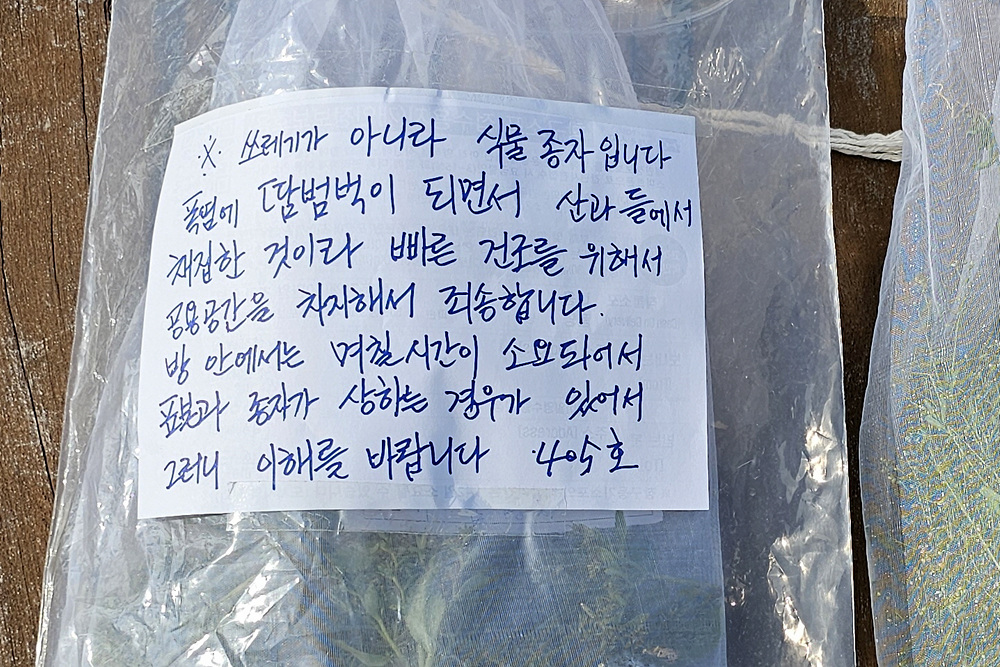 ※ 쓰레기가 아니라 식물 종자입니다
폭염에 땀범벅이 되면서 산과 들에서
채집한 것이라 빠른 건조를 위해서
공용공간을 차지해서 죄송합니다.
방 안에서는 며칠 시간이 소요되어서
표본과 종자가 상하는 경우가 있어서
그러니 이해를 바랍니다